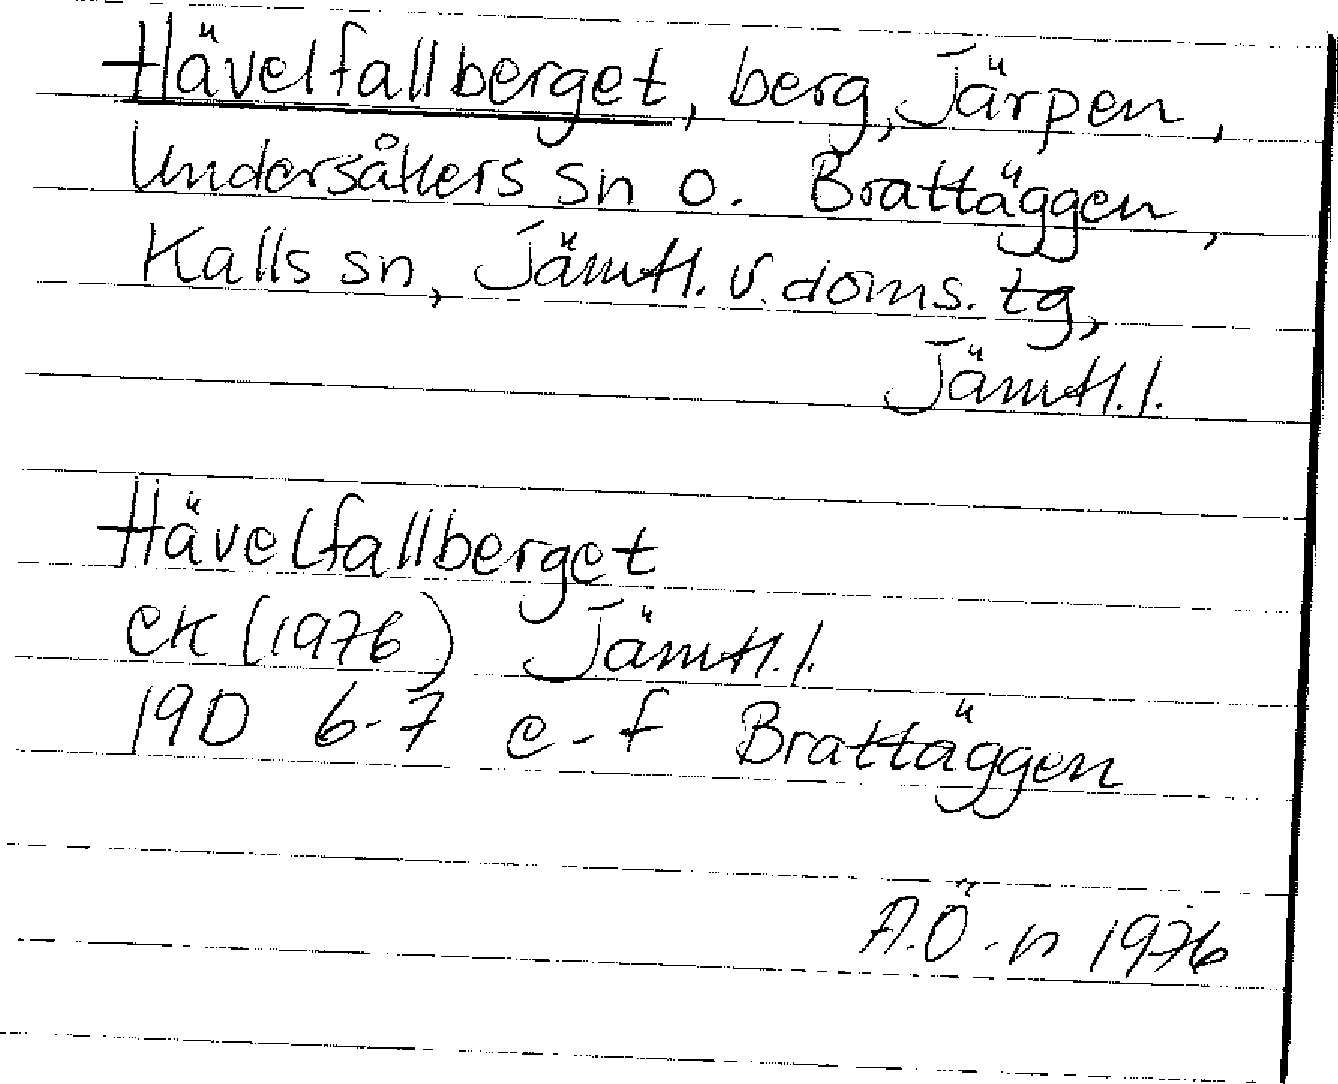 Hävelfallberget, berg, Järpen,
Undersåkers sn o. Brattäggen,
Kalls sn, Jämtl. v. doms. tg,
Jämtl. l.
Hävelfallberget
EK (1976) Jämtl. l.
19D 6-7 e-f Brattäggen
A.Ö-n 1976